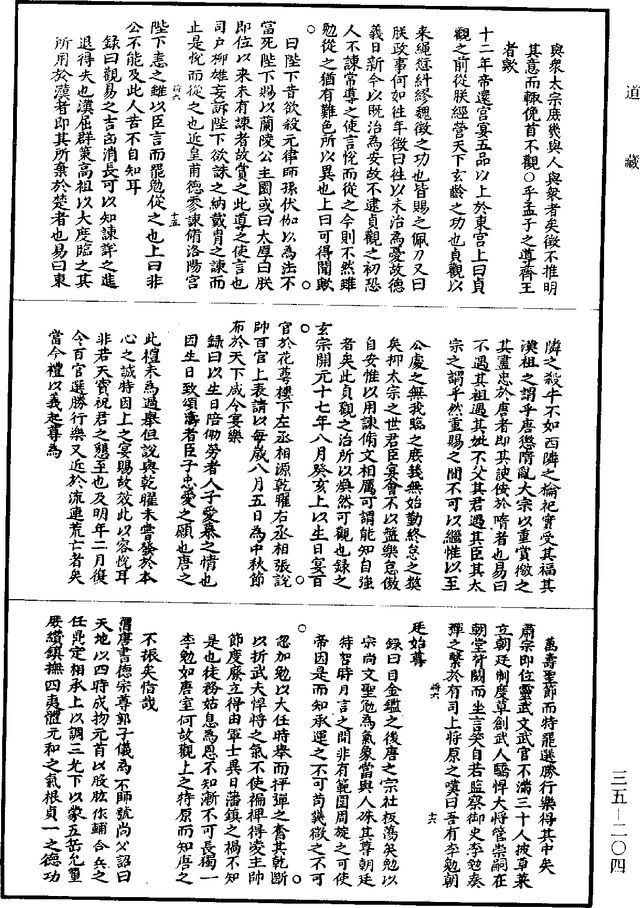 道藏
與衆太宗庶幾與人與衆者矣徵不推明
其意而輒俛首不觀○乎孟子之尊齊王
者歟
十二年帝還宮宴五品以上於東宮上曰貞
觀之前從朕經營天下玄齡之功也貞觀以
來繩愆糾繆魏徵之功也皆賜之佩刀又曰
朕政事何如往年徵曰往以未治為憂故德
義日新今以既治為安故不逮貞觀之初恐
人不諫常導之使言悅而從之今則不然雖
勉從之猶有難色所以異也上曰可得聞歟
曰陛下昔欲殺元律師孫伏伽以為法不
當死陛下賜以蘭陵公主園或曰太厚曰朕
即位以來未有諫者故賞之此導之使言也
司戶柳雄妄訴陛下欲誅之納戴胄之諫而
止是悅而從之也近皇甫德參諫脩洛陽宮
陛下恚之雖以臣言而罷勉從之也上曰非
公不能及此人苦不自知耳
錄曰觀易之言占消長可以知諫諍之進
退得失也漢屈群策高祖以大度臨之其
所用於漢者即其所棄於楚者也易曰東
隣之殺牛不如西隣之禴祀實受其福其
漢祖之謂乎唐懲隋亂大宗以重賞徵之
其盡忠於唐者即其諛佞於隋者也易曰
不過其祖遇其妣不及其君遇其臣其太
宗之謂乎然重賜之間不可以繼惟以至
公處之無我臨之庶幾無始勤終怠之獘
矣抑太宗之世君臣宴會不以盤樂怠傲
自安惟以用諫脩文相屬可謂能知自強
者矣此貞觀之治所以燦然可觀也錄之
○
玄宗開元十七年八月癸亥上以生日宴百
官於花萼樓下左丞相源乾曜右丞相張說
帥百官上表請以每歲八月五日為千秋節
布於天下咸令宴樂
錄曰以生日陪劬勞者人子愛慕之情也
因生日致頌禱者臣子忠愛之願也唐之
此禮未為過舉但說與乾曜未嘗發於本
心之誠特因上之宴賜故效此以容悅耳
非若天寶祝君之懇至也及明年二月復
令百官選勝行樂又近於流連荒亡者矣
當今禮以義起尊為
萬壽聖節而特罷選勝行樂得其中矣
肅宗即位靈武文武官不滿三十人披草萊
立朝廷制度草創武人驕悍大將管崇嗣在
朝堂背闕而坐言笑自若監察御史李勉奏
彈之繫於有司上特原之嘆曰吾有李勉朝
廷始尊
錄曰自金鑑之後唐之宗社板蕩矣勉以
宗尚文聖危為氣象當與人殊其尊朝廷
特智時月言之間非有範圍周旋之可使
帝因是而知承運之不可苟幾微之不可
忽加勉以大任時舉而抨彈之奮其乾斷
以折武夫悍將之氣不使褊裨得凌主帥
節度廢立得由軍士異日藩鎮之禍不知
是也徒務姑息為恩不知漸不可長獨一
李勉如唐室何故觀上之特原而知唐之
不振矣惜哉
謂唐書德宗尊郭子儀為不師號尚父詔曰
天地以四時成物元首以股肱作輔合兵之
任鼎定相承上以調三光下以蒙五岳允釐
庶績鎮撫四夷體元和之氣根貞一之德功
三五—二〇四